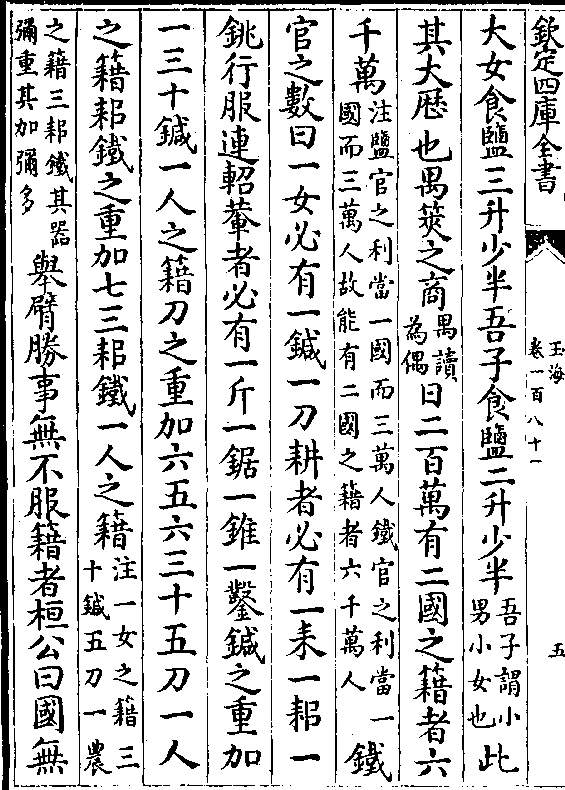 欽定四庫全書
玉海
卷一百八十一
五
大女食鹽三升少半吾子食鹽二升少半吾子謂小男小女也此
其大歷也禺筴之商禺讀為偶日二百萬有二國之籍者六
千萬注鹽官之利當一國而三萬人鐵官之利當一國而三萬人故能有二國之籍者六千萬人鐵
官之數曰一女必有一鍼一刀耕者必有一耒一耜一
銚行服連軺輂者必有一斤一鋸一錐一鑿鍼之重加
一三十鍼一人之籍刀之重加六五六三十五刀一人
之籍耜鐵之重加七三耜鐵一人之籍注一女之籍三十鍼五刀一農
之籍三耜鐵其器彌重其加彌多舉臂勝事無不服籍者桓公曰國無